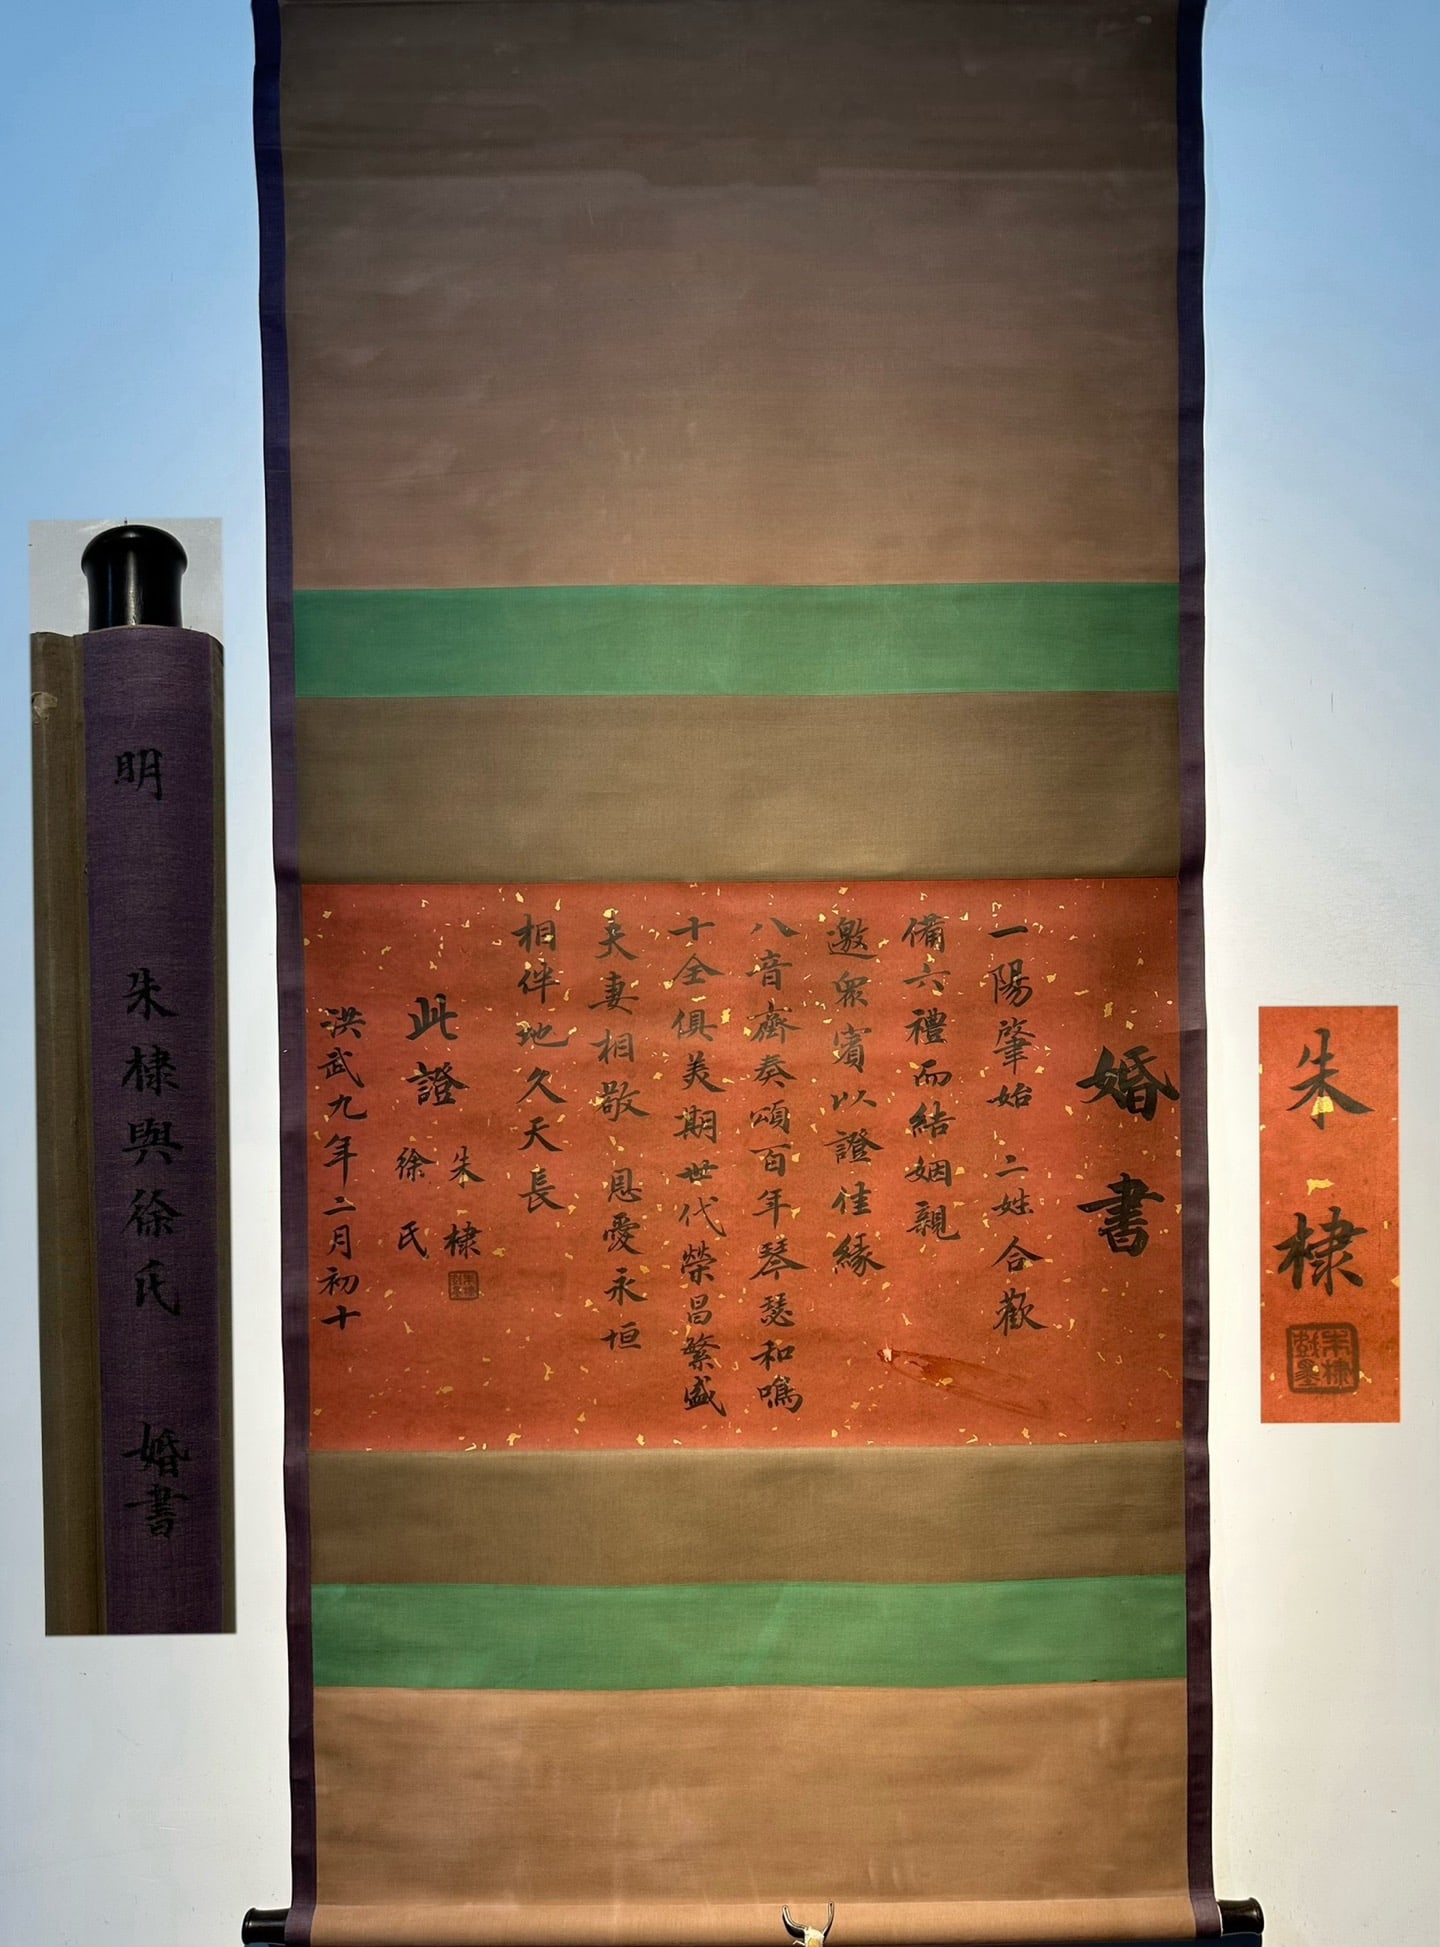 婚書
一陽肇始 二姓合歡
備六禮而結姻親
邀眾賓以證佳緣
八音齊奏頌百年琴瑟和鳴
十全俱美期世代榮昌繁盛
夫妻相敬 恩愛永垣
相伴地久天長
此證
朱棣
徐氏
洪武九年二月初十
明 朱棣與徐氏 婚書
朱棣
朱棣